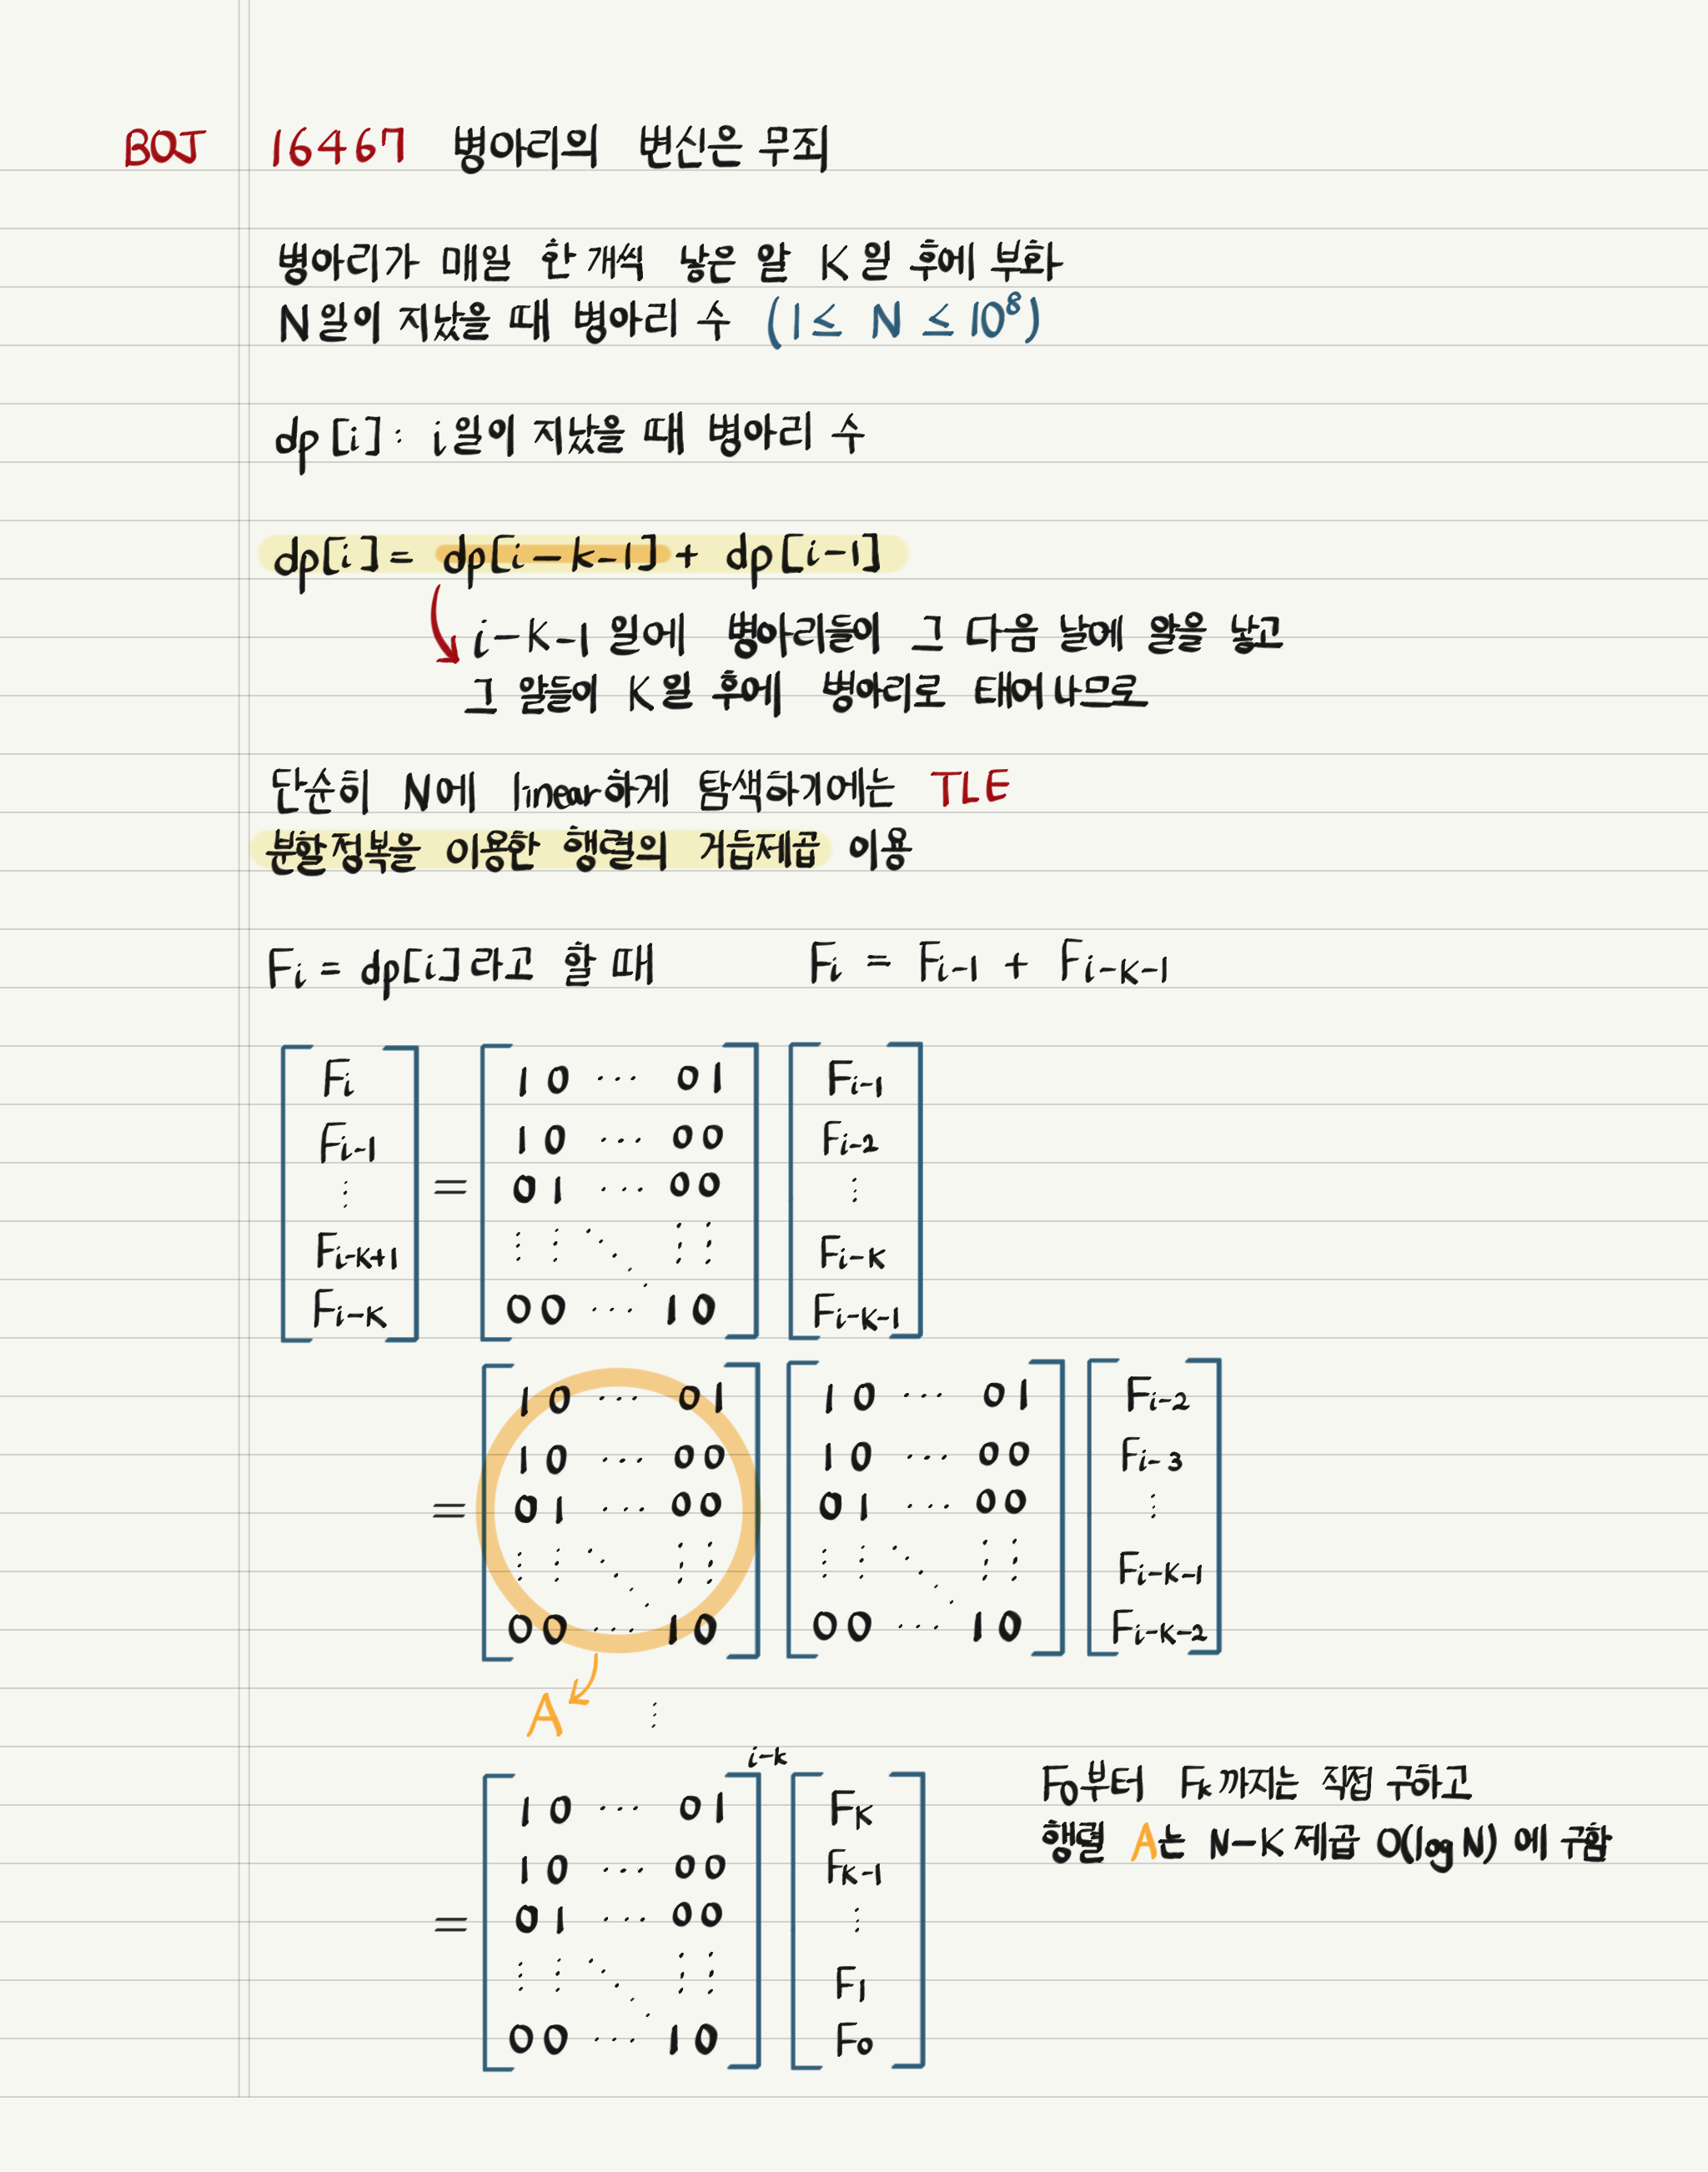 BOJ 16467 병아리의 변신은 무죄
병아리가 매일 한 개씩 낳은 알 K일 후에 부화
N일이 지났을 때 병아리 수 (1 ≤ N ≤ 10⁸)
dp[i] : i일이 지났을 때 병아리 수
dp[i] = dp[i-k-1] + dp[i-1]
i-K-1 일에 병아리들이 그 다음 날에 알을 낳고
그 알들이 K일 후에 병아리로 태어나므로
단순히 N에 linear하게 탐색하기에는 TLE
분할정복을 이용한 행렬의 거듭제곱 이용
Fi = dp[i]라고 할 때 Fi = Fi-1 + Fi-K-1
Fi 1 0 ⋯ 0 1 Fi-1
Fi-1 1 0 ⋯ 0 0 Fi-2
⋮ = 0 1 ⋯ 0 0 ⋮
Fi-K+1 ⋮ ⋮ ⋱ ⋮ ⋮ Fi-K
Fi-K 0 0 ⋯ 1 0 Fi-K-1
1 0 ⋯ 0 1 1 0 ⋯ 0 1 Fi-2
1 0 ⋯ 0 0 1 0 ⋯ 0 0 Fi-3
= 0 1 ⋯ 0 0 0 1 ⋯ 0 0 ⋮
⋮ ⋮ ⋱ ⋮ ⋮ ⋮ ⋮ ⋱ ⋮ ⋮ Fi-K-1
0 0 ⋯ 1 0 0 0 ⋯ 1 0 Fi-K-2
A ⋮
i-k
1 0 ⋯ 0 1 FK
1 0 ⋯ 0 0 FK-1
= 0 1 ⋯ 0 0 ⋮
⋮ ⋮ ⋱ ⋮ ⋮ F1
0 0 ⋯ 1 0 F0
F0부터 Fk까지는 직접 구하고
행렬 A는 N-K 제곱 O(log N) 에 구함